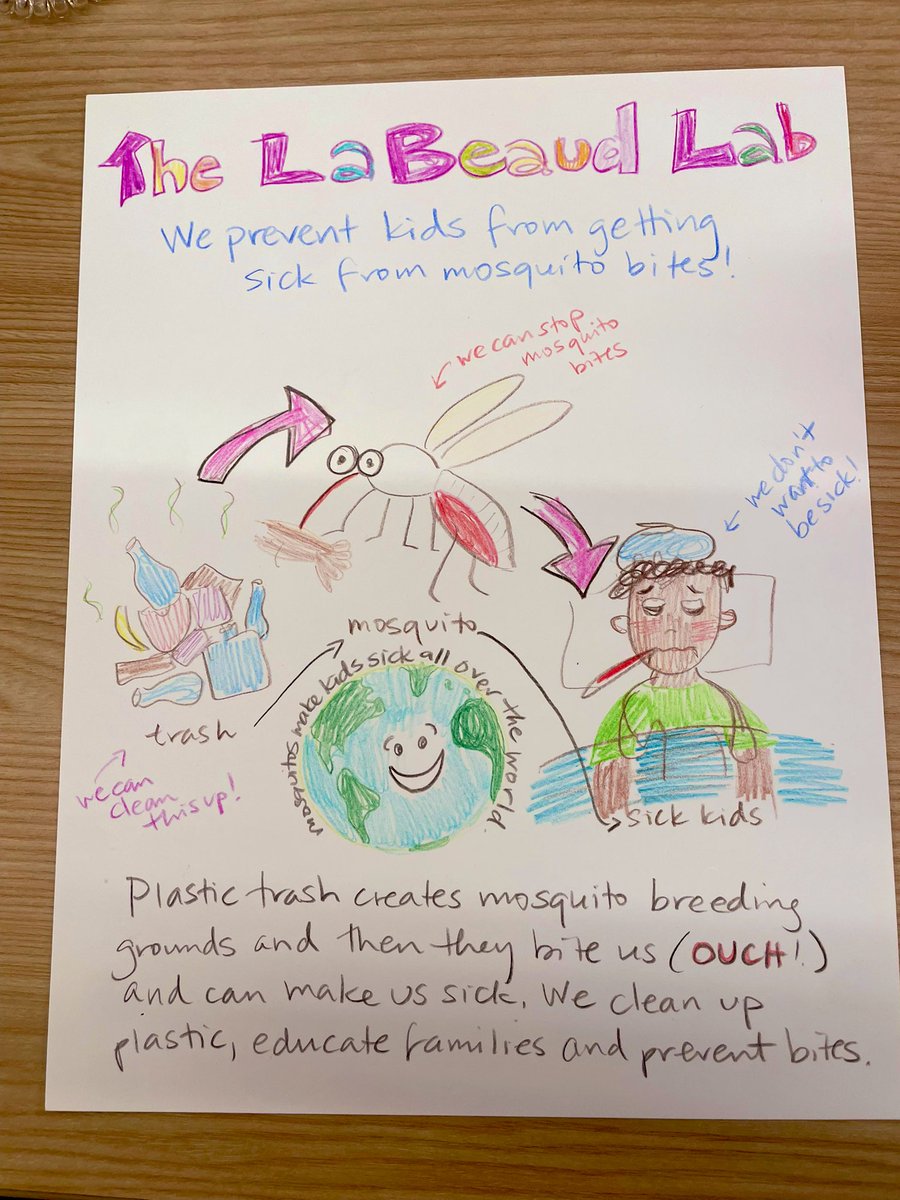 The LaBeaud Lab
We prevent kids from getting
sick from mosquito bites!
we can stop
mosquito
bites
we don't
want to
be sick!
mosquito
mosquitos make kids sick all over the world.
trash
we can
clean
this up!
sick kids
Plastic trash creates mosquito breeding
grounds and then they bite us (OUCH!)
and can make us sick. We clean up
plastic, educate families and prevent bites.